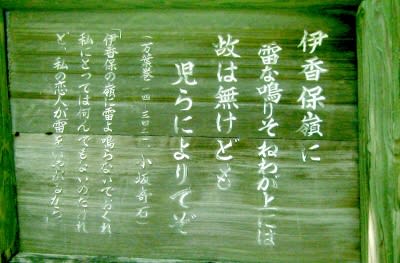 伊香保嶺に
雷な鳴りそねわが上には
故は無けども
児らによりてぞ
（万葉巻一四 三四二一 小坂奇石）
「伊香保の嶺に雷よ鳴らないでおくれ
私にとっては何んでもないのだけれ
ど、私の恋人が雷をいやがるから